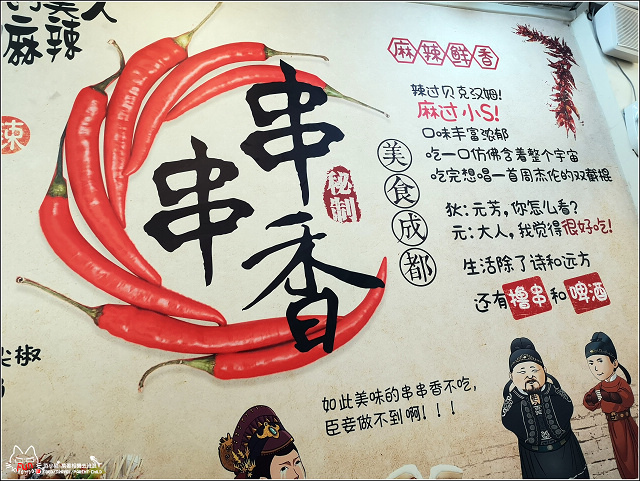 麻辣
人
辣
串串香
秘制
尖椒
麻辣鲜香
辣过贝克汉姆!
麻过小S!
口味丰富浓郁
吃一口仿佛含着整个宇宙
吃完想唱一首周杰伦的双截棍
美食成都
狄:元芳,你怎么看?
元:大人,我觉得很好吃!
生活除了诗和远方
还有撸串和啤酒
如此美味的串串香不吃,
臣妾做不到啊!!!